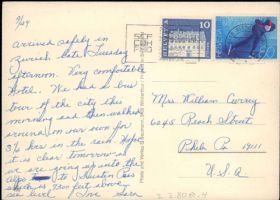 9/24
arrived safely in
Zurich late Tuesday
afternoon. Very comfortable
Hotel. We had a bus
tour of the city this
morning and then walked
around on our own for
3½ hrs in the rain. Hope
it is clear tomorrow as
we are going up into the
alps
which is 7300 feet above
sea level. Love
HELVETIA
10
Mrs William Curry
6045 Reach Street
Phila Pa 19111
U.S.A.